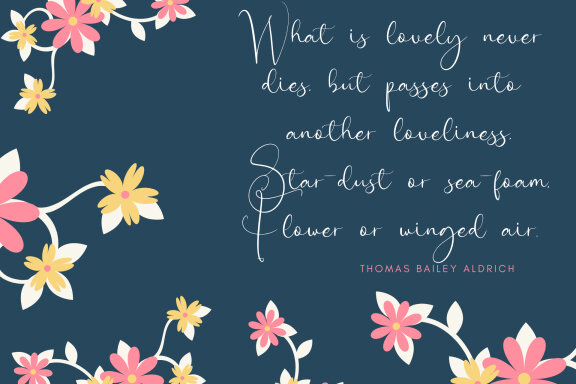 What is lovely never
dies, but passes into
another loveliness,
Star-dust or sea-foam,
Flower or winged air.
THOMAS BAILEY ALDRICH